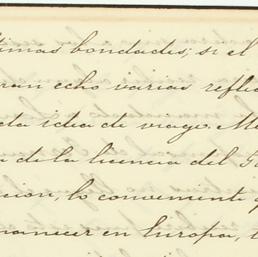 timas bondades; si el
ran echo varias refle
ta idea de viage. M
a de la licencia del G
cion, lo conveniente
manecer en Europa,